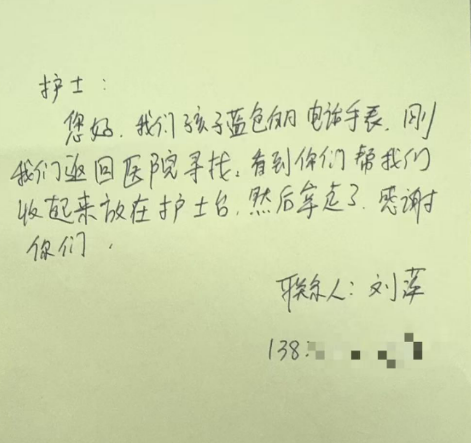 护士：
您好，我们孩子蓝色的电话手表，刚
我们返回医院寻找，看到你们帮我们
收起来放在护士台，然后拿走了，感谢
你们，
联系人：刘萍
138: